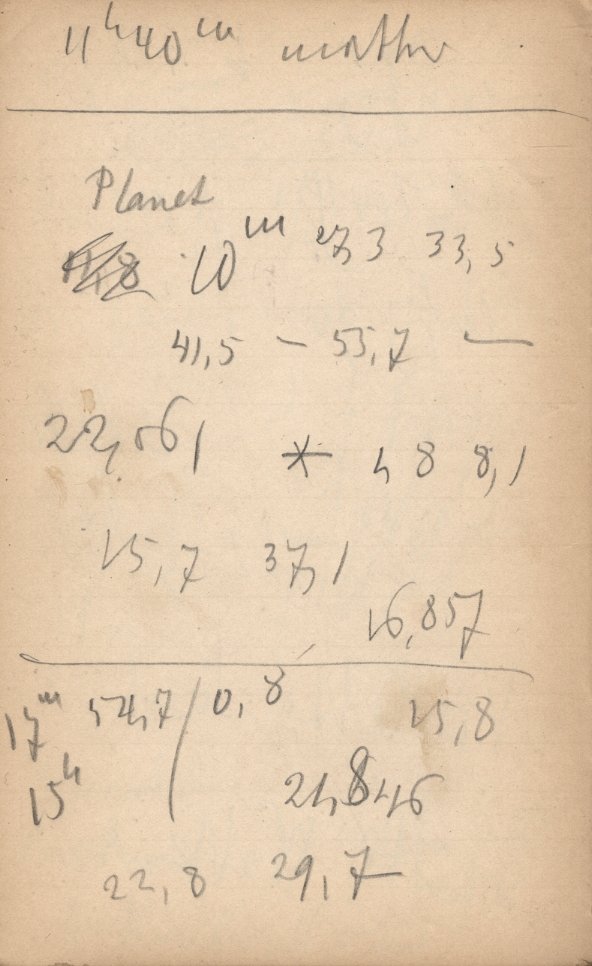 11h 40m
Planet
10m 27,3 33,5
41,5 — 55,7 —
22,061 * 48 8,1
15,7 37,1
16,857
17m 54,7 / 0,8 15,8
15h
21,846
22,8 29,7